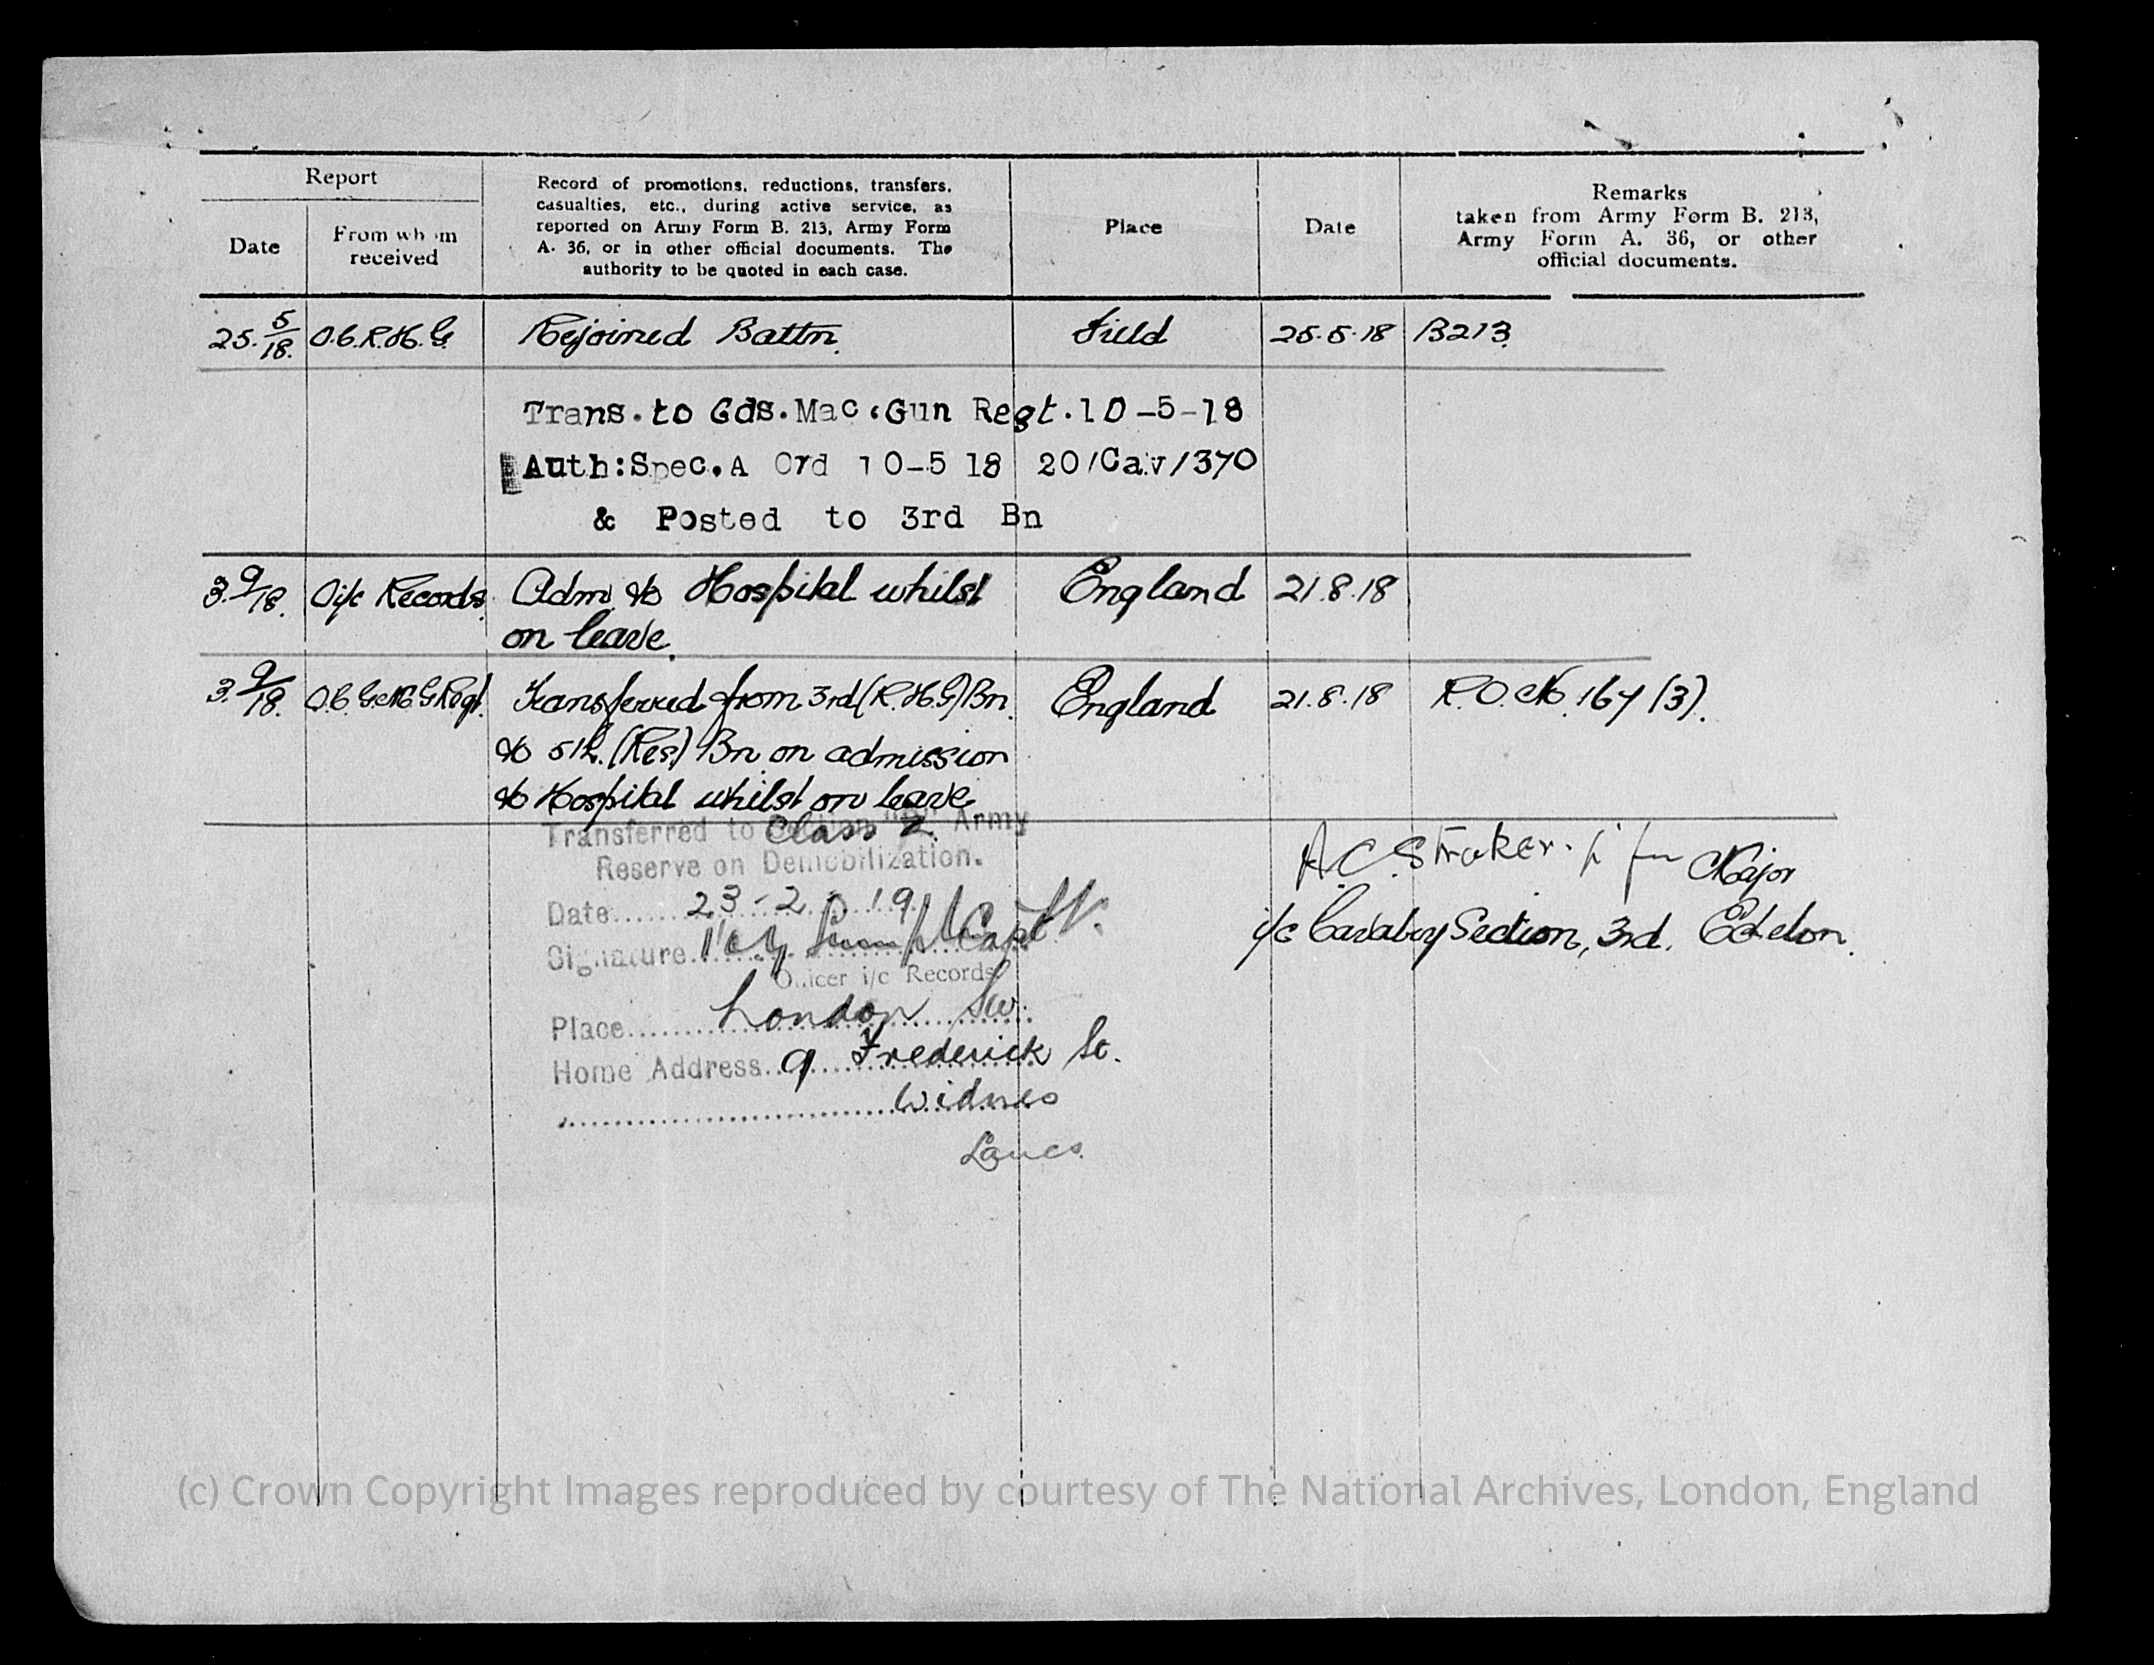 Report
Date
From whom received
Record of promotions, reductions, transfers,
casualties, etc., during active service, as
reported on Army Form B. 213, Army Form
A. 36, or in other official documents. The
authority to be quoted in each case.
Place
Date
Remarks
taken from Army Form B. 213,
Army Form A. 36, or other
official documents.
25. 5/18. O.C. R.H.G. Rejoined Battn. Field 25.5.18 B213.
Trans. to Gds. Mac. Gun Regt. 10-5-18
Auth: Spec. A Ord 10-5 18 20/Cav/370
& Posted to 3rd Bn
3. 9/18. O i/c Records. Adm. to Hospital whilst England 21.8.18
on leave.
3. 9/18. O.C. G.M.G. Regt. Transferred from 3rd (R.H.G) Bn. England 21.8.18 R.O. No. 167 (3).
to 5th. (Res.) Bn on admission
to Hospital whilst on leave
Transferred to Class Z. Army
Reserve on Demobilization.
Date 23-2-19
Signature Capt
Officer i/c Records
Place London SW.
Home Address 9 Frederick St.
Widnes
Lancs.
A.C. Straker. for Major
i/c Cavalry Section, 3rd. Echelon.
(c) Crown Copyright Images reproduced by courtesy of The National Archives, London, England